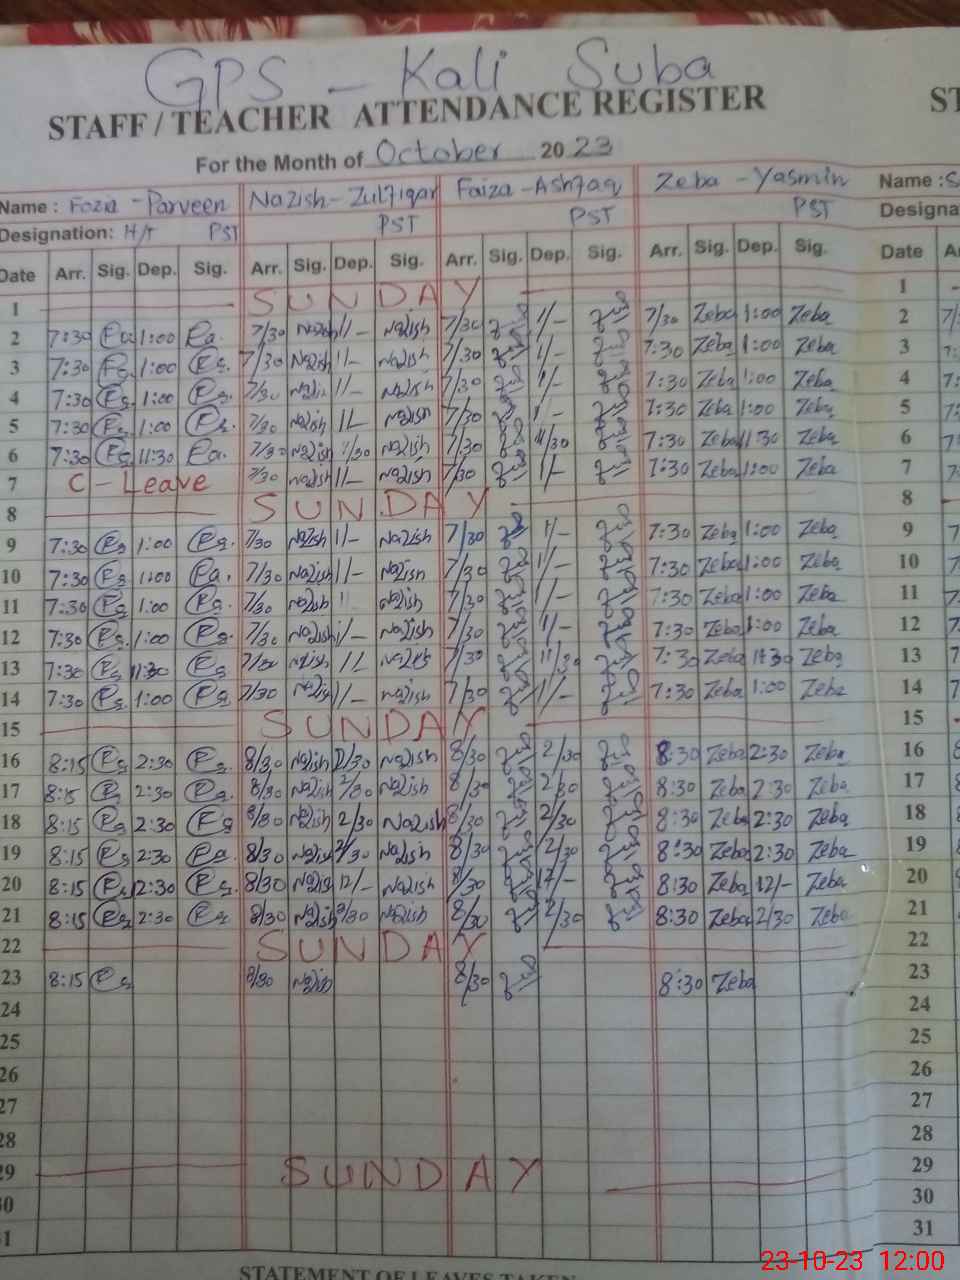 GPS - Kali Suba
STAFF / TEACHER ATTENDANCE REGISTER ST
For the Month of October 2023
Name : Fozia - Parveen Nazish - Zulfiqar Faiza - Ashfaq Zeba - Yasmin Name :
Designation: H/T PST PST PST PST Designa
Date Arr. Sig. Dep. Sig. Arr. Sig. Dep. Sig. Arr. Sig. Dep. Sig. Arr. Sig. Dep. Sig. Date
1 SUNDAY 1
2 7:30 1:00 7/30 Nazish 1/- Nazish 7/30 1/- 7/30 Zeba 1:00 Zeba 2
3 7:30 1:00 7/30 Nazish 1/- Nazish 7/30 1/- 7:30 Zeba 1:00 Zeba 3
4 7:30 1:00 7/30 Nazish 1/- Nazish 7/30 1/- 7:30 Zeba 1:00 Zeba 4
5 7:30 1:00 7/30 Nazish Nazish 7/30 1/- 7:30 Zeba 1:00 Zeba 5
6 7:30 11:30 7/30 Nazish Nazish 7/30 11/30 7:30 Zeba 11:30 Zeba 6
7 C - Leave 7/30 Nazish 1/- Nazish 7/30 1/- 7:30 Zeba 1:00 Zeba 7
8 SUNDAY 8
9 7:30 1:00 7/30 Nazish 1/- Nazish 7/30 1/- 7:30 Zeba 1:00 Zeba 9
10 7:30 1:00 7/30 Nazish 1/- Nazish 7/30 1/- 7:30 Zeba 1:00 Zeba 10
11 7:30 1:00 7/30 Nazish Nazish 7/30 1/- 7:30 Zeba 1:00 Zeba 11
12 7:30 1:00 7/30 Nazish 1/- Nazish 7/30 1/- 7:30 Zeba 1:00 Zeba 12
13 7:30 11:30 7/30 Nazish Nazish 7/30 11/30 7:30 Zeba 11:30 Zeba 13
14 7:30 1:00 7/30 Nazish 1/- Nazish 7/30 1/- 7:30 Zeba 1:00 Zeba 14
15 SUNDAY 15
16 8:15 2:30 8/30 Nazish 2/30 Nazish 8/30 2/30 8:30 Zeba 2:30 Zeba 16
17 8:15 2:30 8/30 Nazish 2/30 Nazish 8/30 2/30 8:30 Zeba 2:30 Zeba 17
18 8:15 2:30 8/30 Nazish 2/30 Nazish 8/30 2/30 8:30 Zeba 2:30 Zeba 18
19 8:15 2:30 8/30 Nazish 2/30 Nazish 8/30 2/30 8:30 Zeba 2:30 Zeba 19
20 8:15 12:30 8/30 Nazish 12/- Nazish 8/30 12/- 8:30 Zeba 12/- Zeba 20
21 8:15 2:30 8/30 Nazish 2/30 Nazish 8/30 2/30 8:30 Zeba 2/30 Zeba 21
22 SUNDAY 22
23 8:15 8/30 Nazish 8/30 8:30 Zeba 23
24 24
25 25
26 26
27 27
28 28
29 SUNDAY 29
30 30
31 31
STATEMENT OF LEAVES TAKEN
23-10-23 12:00